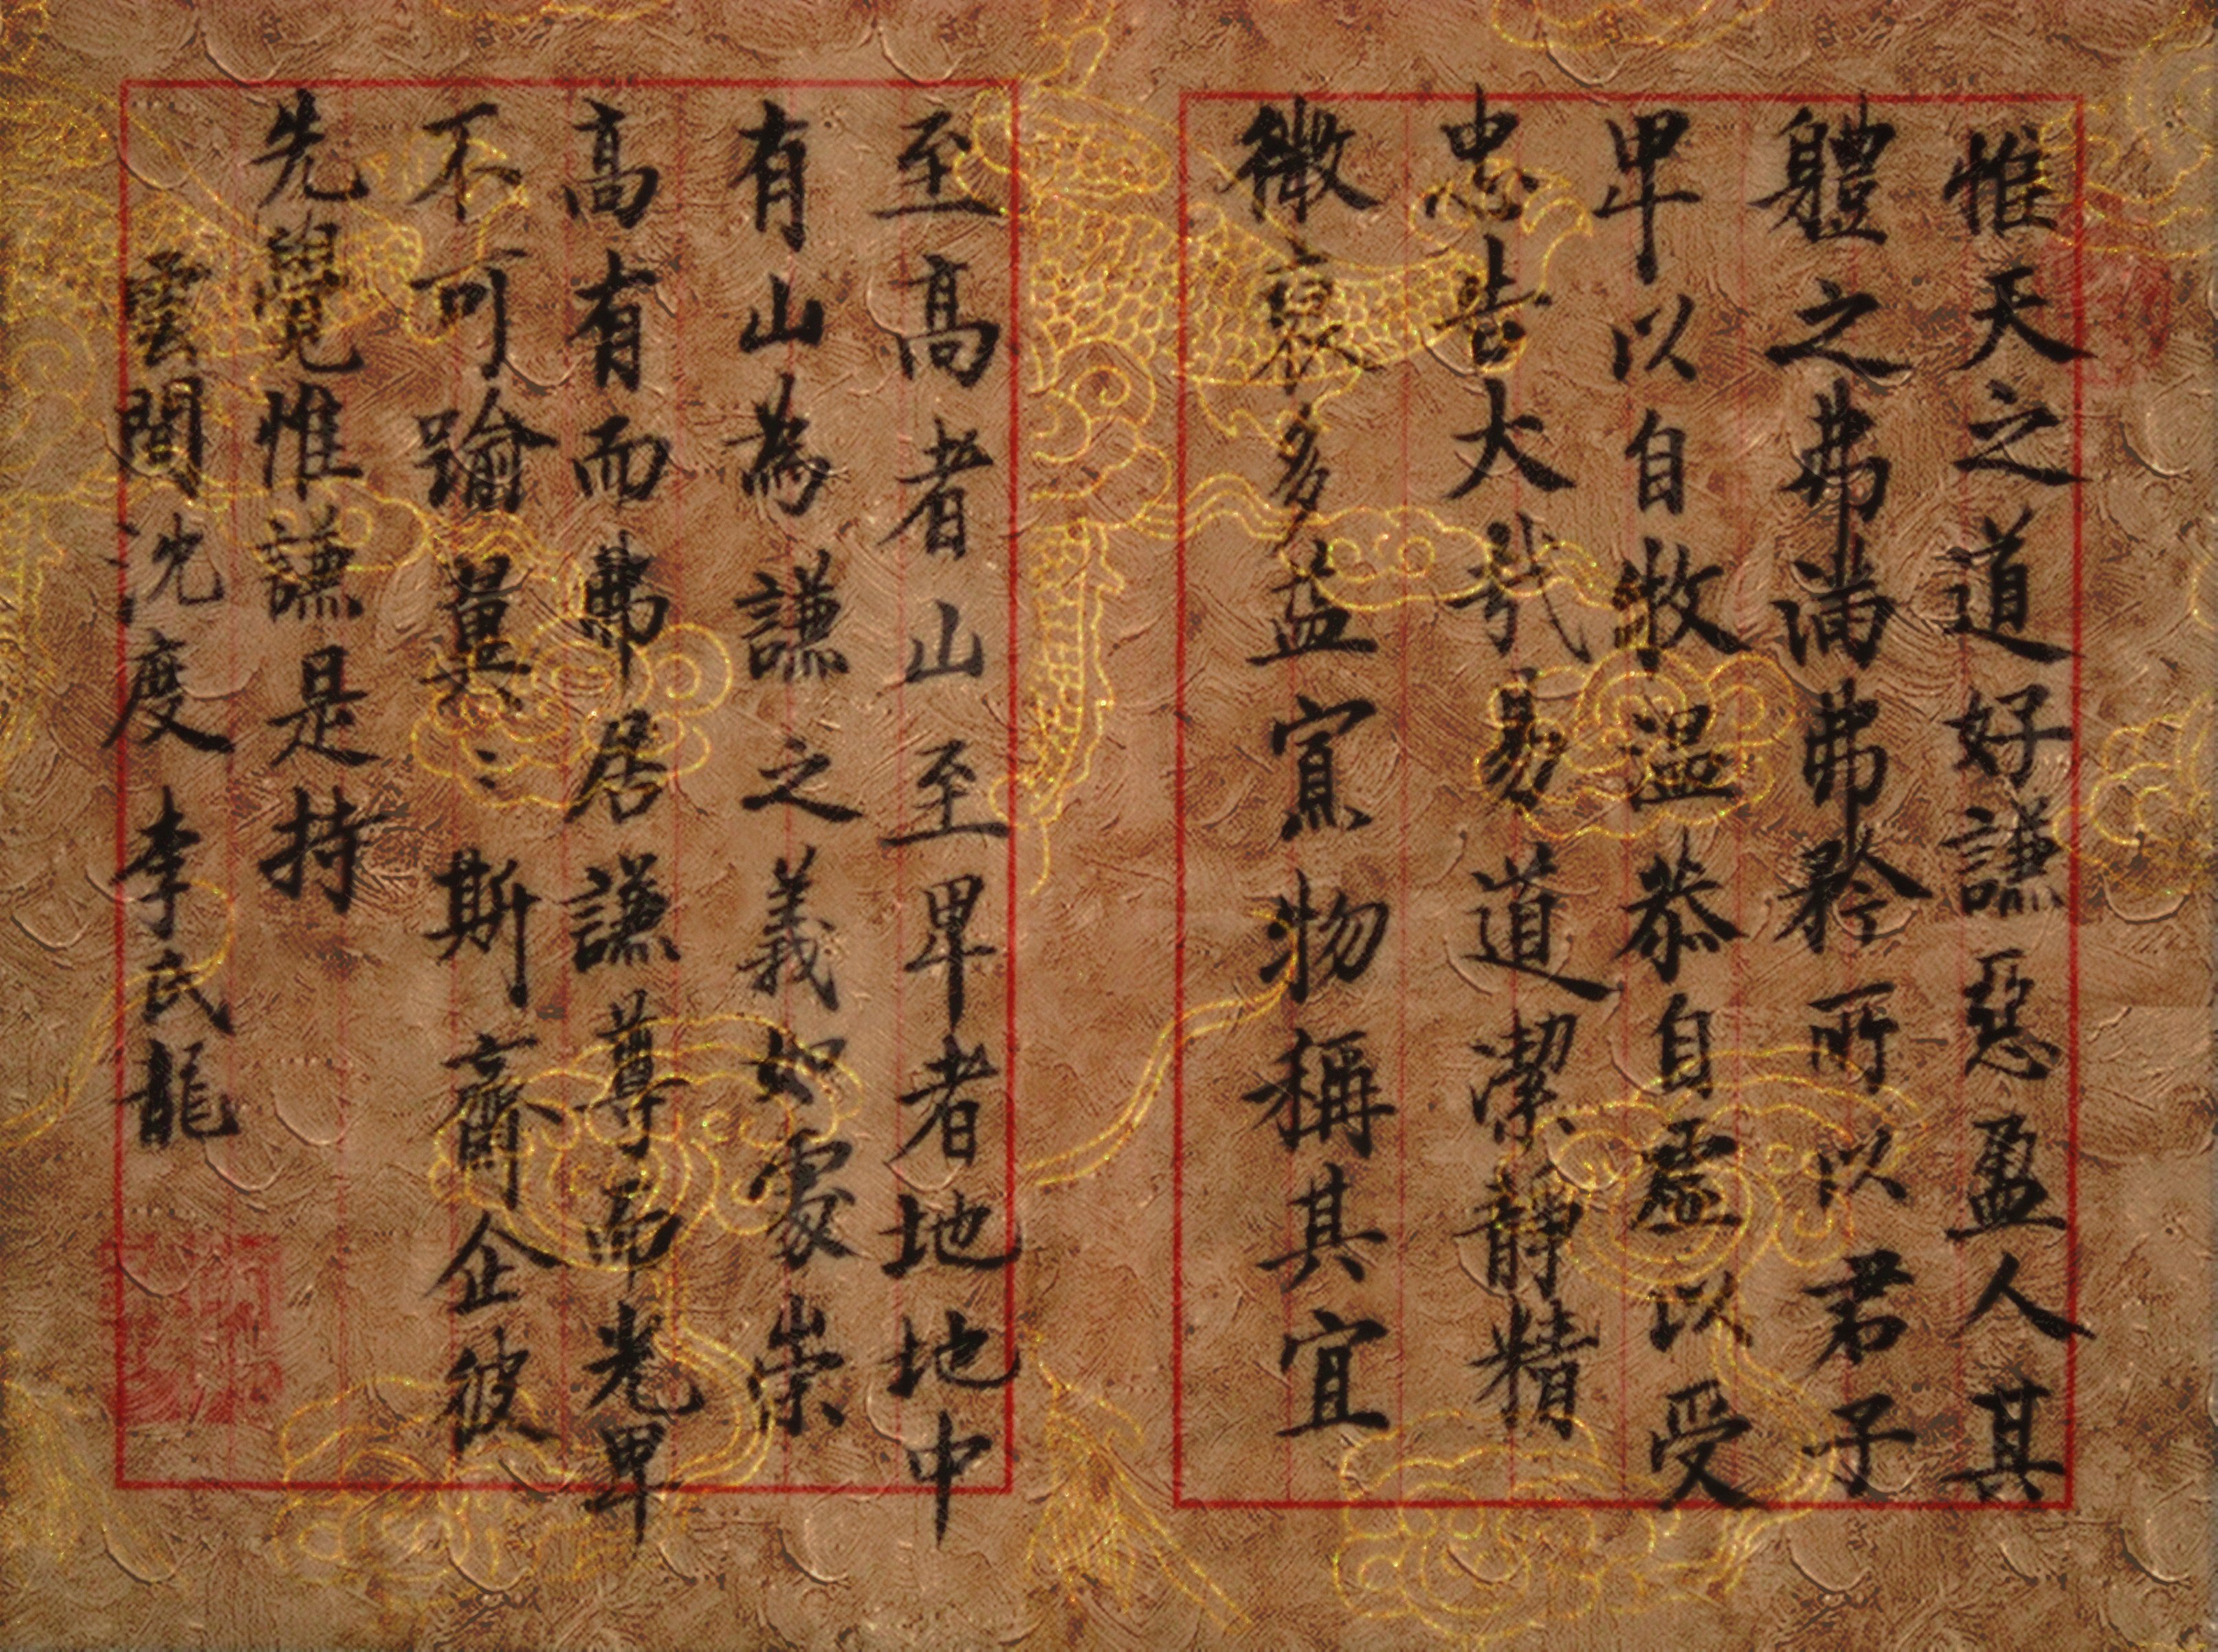 惟天之道好謙惡盈人其
體之弗滿弗矜所以君子
卑以自牧溫恭自虛以受
忠告大哉易道潔靜精
微裒多益寡物稱其宜
至高者山至卑者地地中
有山為謙之義如處崇
高有而弗居謙尊而光卑
不可踰量〻斯齋企彼
先覺惟謙是持
雲間沈度 李氏龍